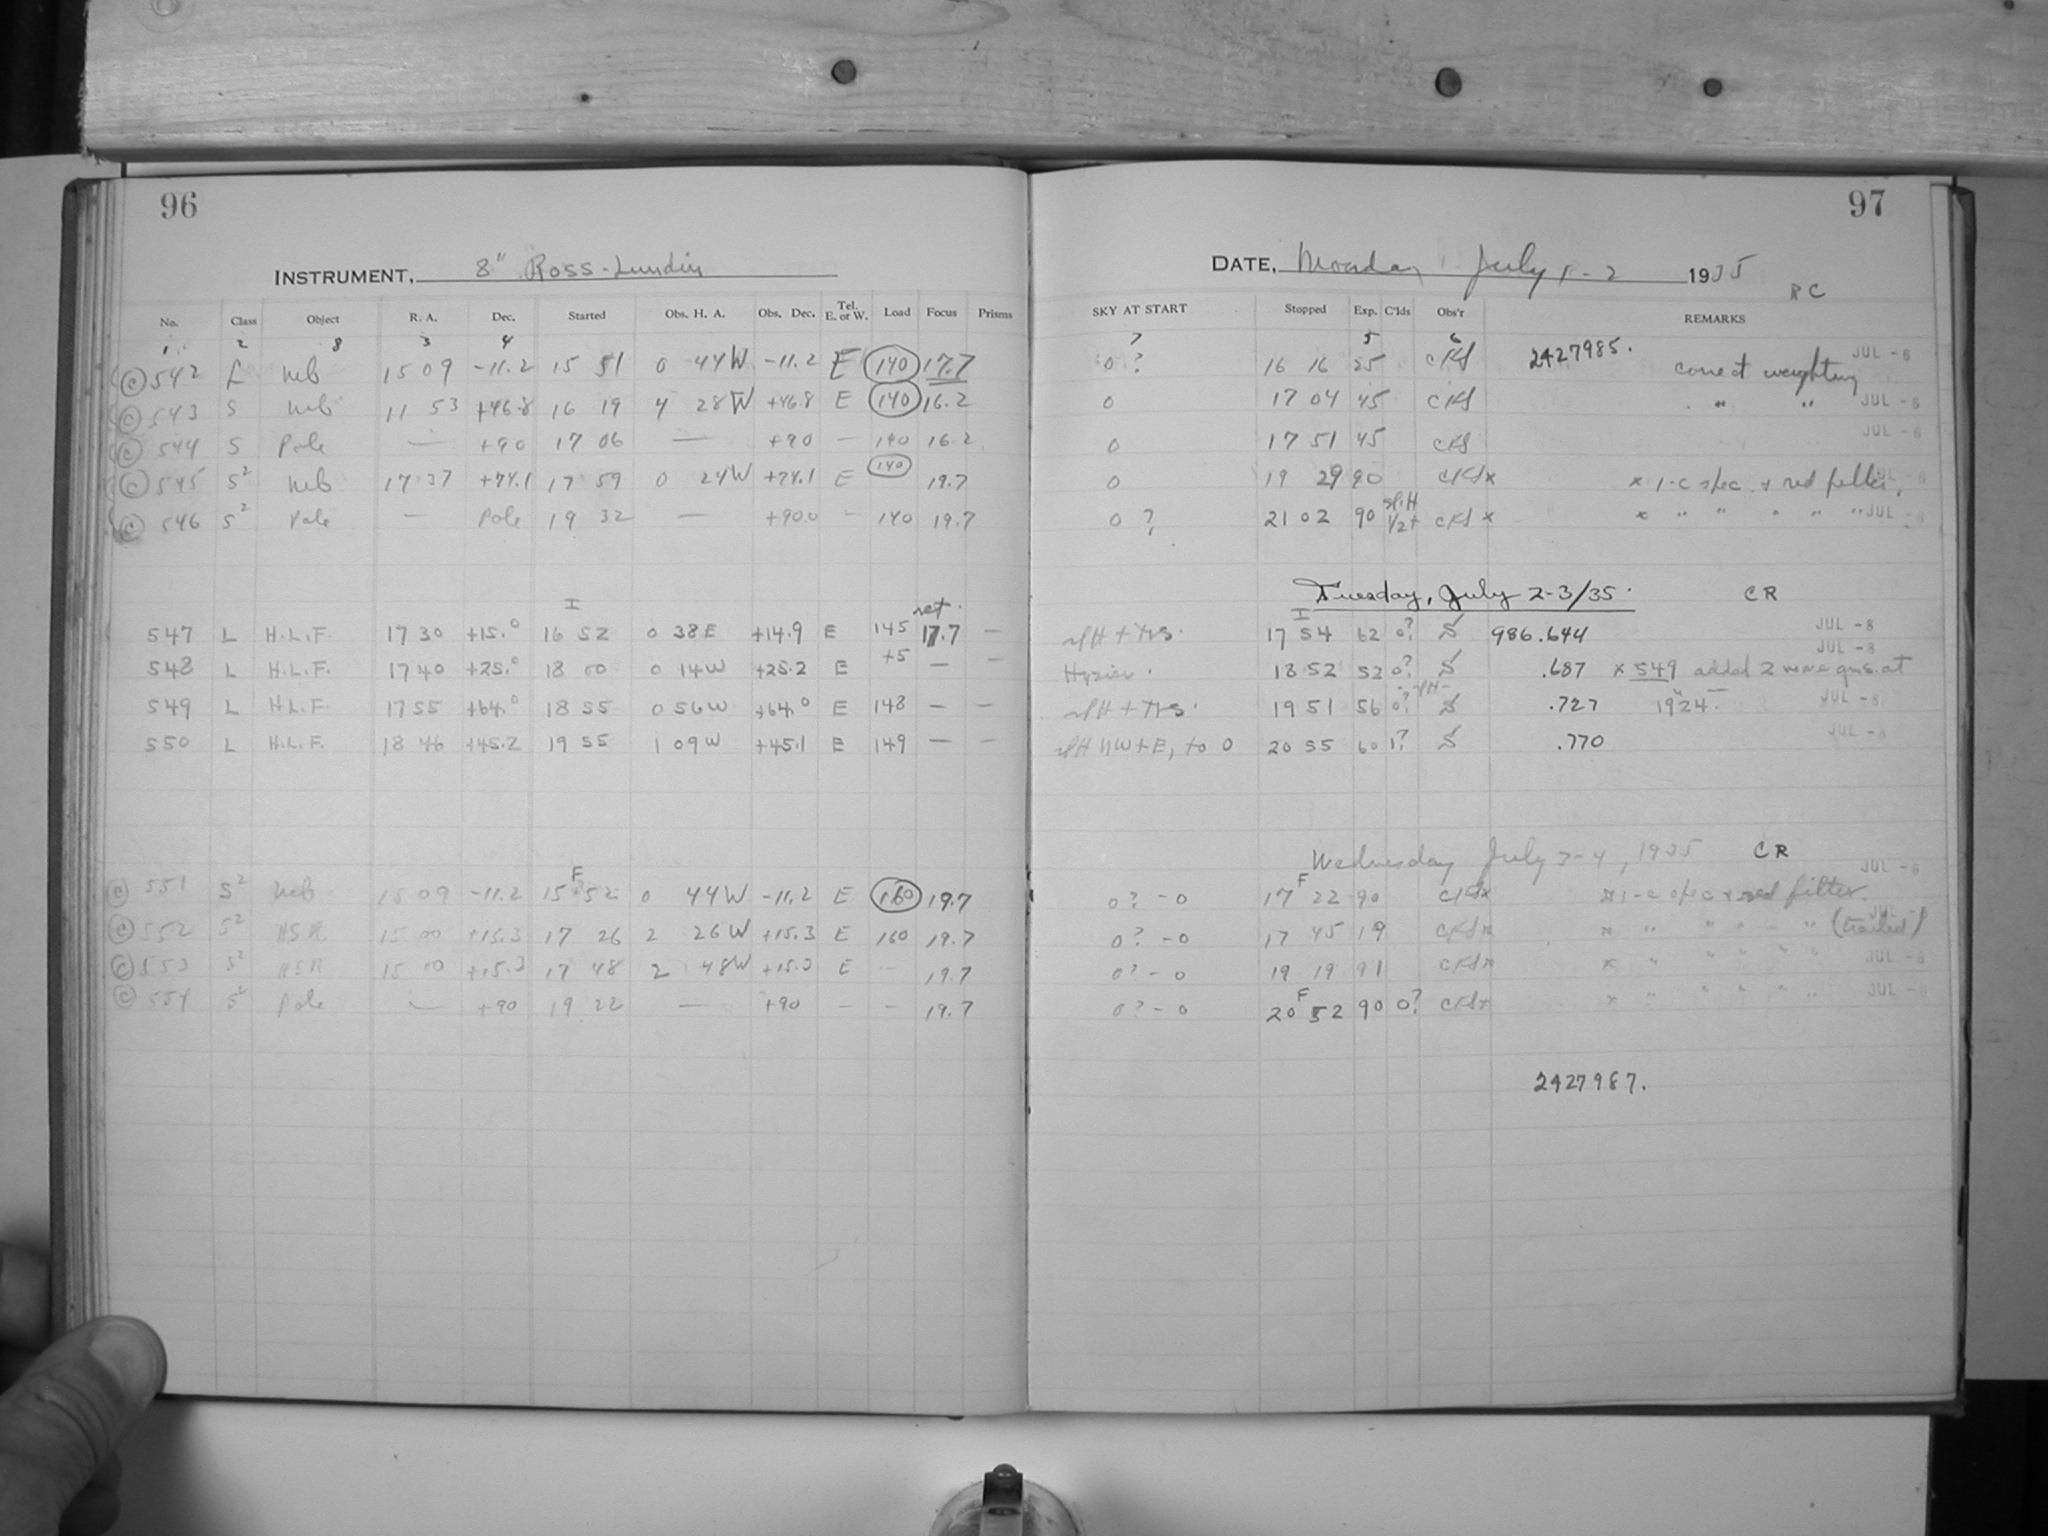 96
INSTRUMENT, 8" Ross-Lundin
No. Class Object R. A. Dec. Started Obs. H. A. Obs. Dec. Tel. E. or W. Load Focus Prisms
1 2 8 3 4
© 542 L Neb 15 09 -11.2 15 51 0 44W -11.2 E 140 17.7
© 543 S Neb 11 53 +46.8 16 19 4 28W +46.8 E 140 16.2
© 544 S Pole — +90 17 06 — +90 — 140 16.2
© 545 S² Neb 17 37 +74.1 17 59 0 24W +74.1 E 140 19.7
© 546 S² Pole — Pole 19 32 — +90.0 — 140 19.7
I ret.
547 L H.L.F. 17 30 +15.0 16 52 0 38E +14.9 E 145 17.7 —
548 L H.L.F. 17 40 +25.0 18 00 0 14W +25.2 E +5 — —
549 L H.L.F. 17 55 +64.0 18 55 0 56W +64.0 E 148 — —
550 L H.L.F. 18 46 +45.2 19 55 1 09W +45.1 E 149 — —
F
© 551 S² Neb 15 09 -11.2 15 52 0 44W -11.2 E 160 19.7
© 552 S² HSR 15 00 +15.3 17 26 2 26W +15.3 E 160 19.7
© 553 S² HSR 15 00 +15.3 17 48 2 48W +15.3 E — 19.7
© 554 S² Pole — +90 19 22 — +90 — — 19.7
97
DATE, Monday July 1-2 1935
RC
SKY AT START Stopped Exp. C'lds Obs'r REMARKS
7 5 6
0? 16 16 25 CKS 2427985. correct weighting JUL -6
0 17 04 45 CKS " " JUL -6
0 17 51 45 CKS JUL -6
0 19 29 90 CKS x x 1-C spec. + red filter. JUL -6
0 ? 21 02 90 spH 1/2+ CKS x x " " " " " JUL -6
Tuesday, July 2-3/35. CR
I
spH + Trs. 17 54 62 0? S 986.644 JUL -8
Hazier. 18 52 52 0? S .687 x 549 added 2 more gms. at JUL -8
spH + Trs. 19 51 56 0? S .727 1924. JUL -8
spH NW+E, to 0 20 55 60 1? S .770 JUL -8
Wednesday July 3-4, 1935 CR JUL -6
F
0? - 0 17 22 90 CKSx x 1-C spec + red filter.
0? - 0 17 45 19 CKSx x " " " " (trailed) JUL -8
0? - 0 19 19 91 CKSx x " " " " " JUL -8
F
0? - 0 20 52 90 0? CKSx x " " " " " JUL -6
2427987.